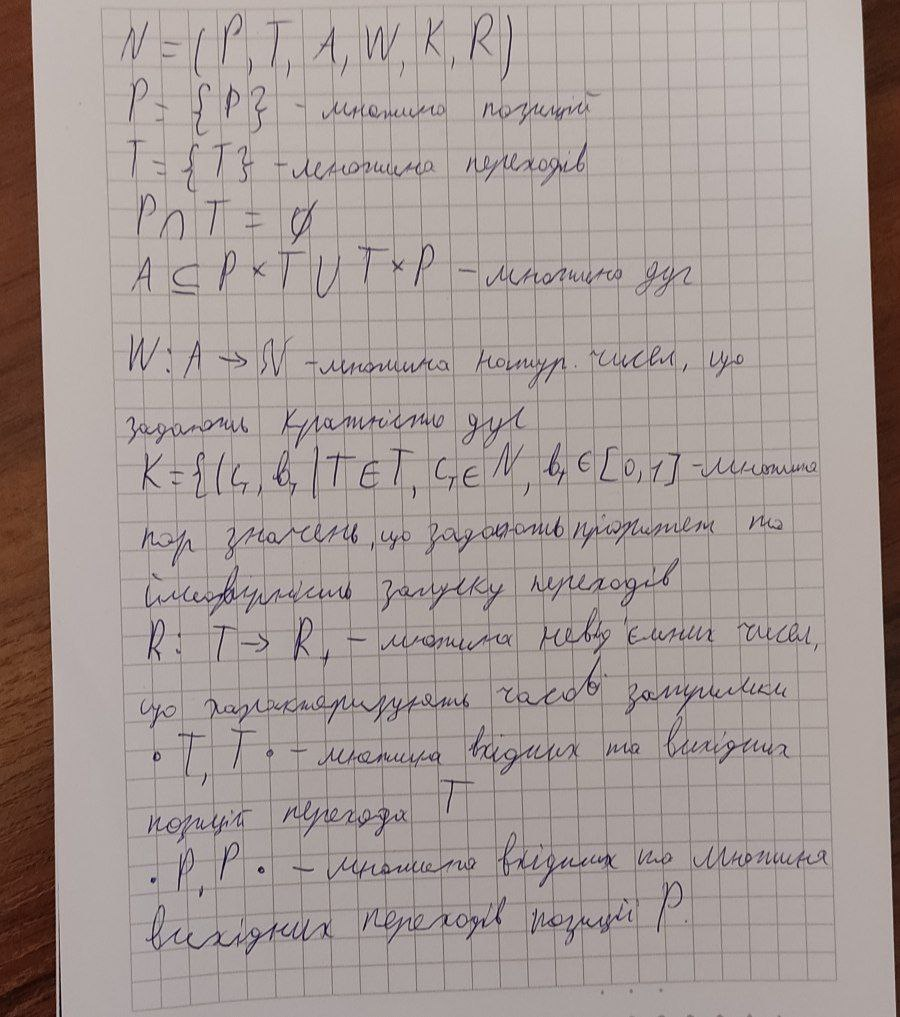 N = (P, T, A, W, K, R)
P = {P} - множина позицій
T = {T} - множина переходів
P ∩ T = ∅
A ⊆ P × T ∪ T × P - множина дуг
W: A → N - множина натур. чисел, що
задають кратність дуг
K = {(c_T, b_T | T ∈ T, c_T ∈ N, b_T ∈ [0,1] - множина
пар значень, що задають пріоритет та
ймовірність запуску переходів
R: T → R+ - множина невід'ємних чисел,
що характеризують часові затримки
•T, T• - множина вхідних та вихідних
позицій перехода T
•P, P• - множина вхідних та множина
вихідних переходів позиції P.